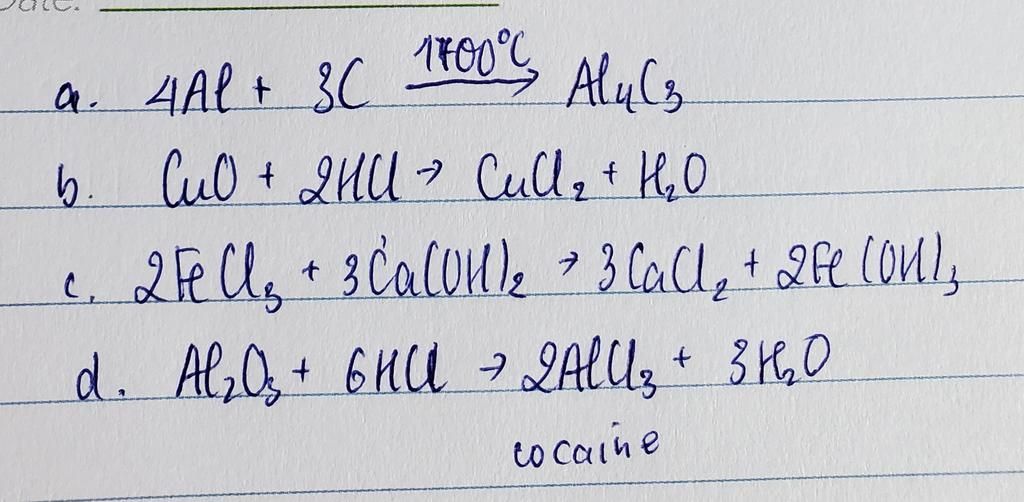 Date:
a. 4Al + 3C 1700°C → Al4C3
b. CuO + 2HCl → CuCl2 + H2O
c. 2FeCl3 + 3Ca(OH)2 → 3CaCl2 + 2Fe(OH)3
d. Al2O3 + 6HCl → 2AlCl3 + 3H2O
cocaine